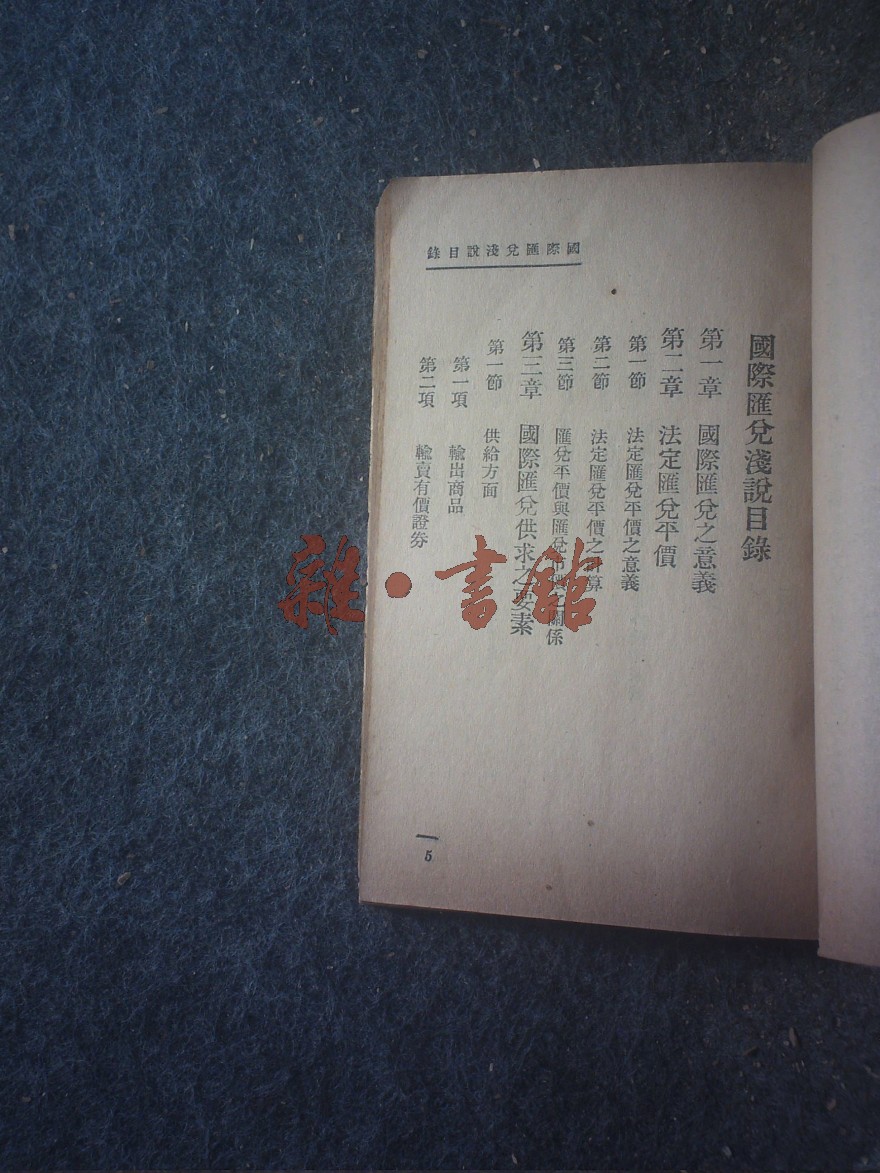 國際匯兌淺說目錄
國際匯兌淺說目錄
第一章 國際匯兌之意義
第二章 法定匯兌平價
第一節 法定匯兌平價之意義
第二節 法定匯兌平價之計算
第三節 匯兌平價與匯兌市價之關係
第三章 國際匯兌供求之要素
第一節 供給方面
第一項 輸出商品
第二項 輸賣有價證券
5
雜·書館